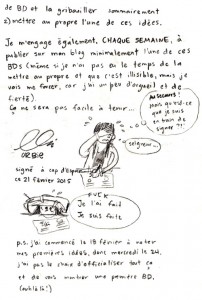 de BD et la gribouiller sommairement
2) mettre au propre l'une de ces idées.
Je m'engage également, CHAQUE SEMAINE, à
publier sur mon blog minimalement l'une de ces
BDs (même si je n'ai pas eu le temps de la
mettre au propre et que c'est illisible, mais je
vais me forcer, car j'ai un peu d'orgueil et de
fierté).
Ça ne sera pas facile à tenir...
AU SECOURS!
mais qu'est-ce
que je suis
en train de
signer ?!
seigneur...
ORBIE
signé à cap d'
ce 21 février 2015
FUCK
Je l'ai fait
Je suis faite
p.s. j'ai commencé le 18 février à noter
mes premières idées, donc mercredi le 24,
j'ai pas le choix d'officialiser tout ça
et de vous montrer une première BD.
(ouhlàlà!)